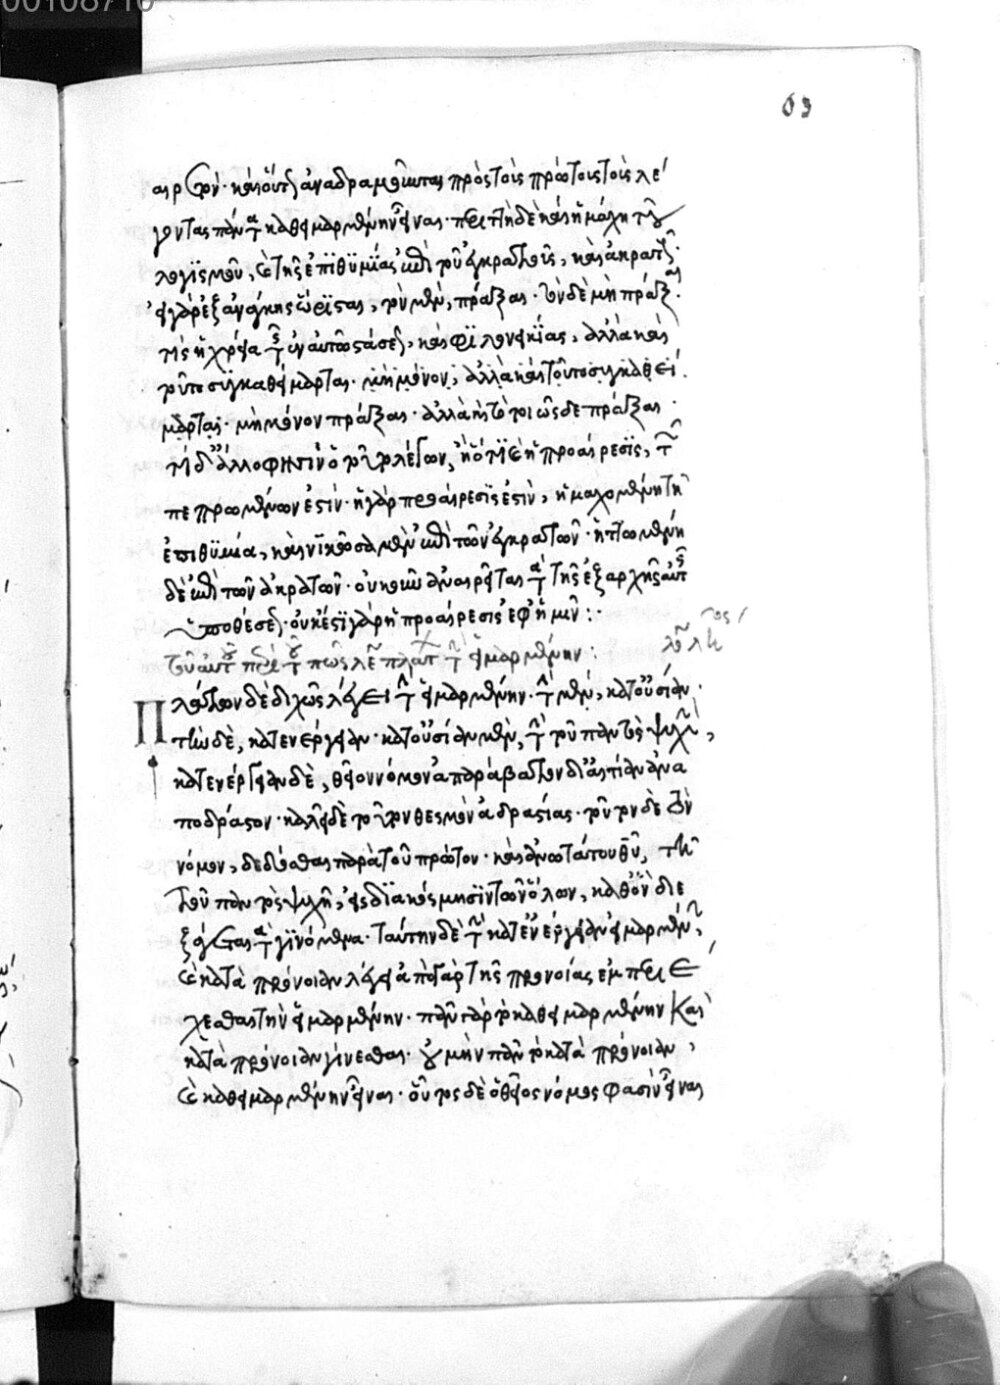 00108710
63
αιρετόν· καὶ οὕτως ἀναδραμοῦνται πρὸς τοὺς πρώτους τοὺς λέ
γοντας πάντα καθ' εἱμαρμένην εἶναι· περιττὴ δὲ καὶ ἡ μάχη τοῦ
λογισμοῦ, καὶ τῆς ἐπιθυμίας ἐπὶ τοῦ ἐγκρατοῦς, καὶ ἀκρατοῦς·
εἰ γὰρ ἐξ ἀνάγκης ὥρισται, τὸν μὲν, πρᾶξαι· τὸν δὲ μὴ πρᾶξαι·
τίς ἡ χρεία τῆς ἐν αὐτοῖς στάσεως, καὶ φιλονεικίας, ἀλλὰ καὶ
τοῦτο συγκαθείμαρται· μὴ μόνον, ἀλλὰ καὶ τοῦτο συγκαθεί
μαρται· μὴ μόνον πρᾶξαι· ἀλλὰ καὶ τὸ τοιῶσδε πρᾶξαι·
τί δ' ἄλλο φησὶν ὁ τοῦτο λέγων, ἢ ὅτι καὶ ἡ προαίρεσις, τῶν
πεπρωμένων ἐστίν· ἡ γὰρ προαίρεσις ἐστὶν, ἡ μαχομένη τῇ
ἐπιθυμία, καὶ νικῶσα μὲν ἐπὶ τῶν ἐγκρατῶν· ἡττωμένη
δὲ ἐπὶ τῶν ἀκρατῶν· οὐκοῦν ἀναιρεῖται τὰ τῆς ἐξαρχῆς αὐτῆς
ὑποθέσεως· οὐκέτι γὰρ ἡ προαίρεσις ἐφ' ἡμῖν:·
τοῦ αὐτοῦ περὶ τοῦ πῶς λέγει πλάτων τὴν εἱμαρμένην:
Πλάτων δὲ διχῶς λέγει τὴν εἱμαρμένην· τὴν μὲν, κατ' οὐσίαν·
τὴν δὲ, κατ' ἐνέργειαν· κατ' οὐσίαν μὲν, τὴν τοῦ παντὸς ψυχὴν,
κατ' ἐνέργειαν δὲ, θεῖον νόμον ἀπαράβατον δι' αἰτίαν ἀνα
πόδραστον· καλεῖ δὲ τοῦτον θεσμὸν ἀδραστίας· τοῦτον δὲ τὸν
νόμον, δεδόσθαι παρὰ τοῦ πρώτου καὶ ἀνωτάτου θῦ, τῇ
τοῦ παντὸς ψυχῇ, εἰς διακόσμησιν τῶν ὅλων, καθ' ὃν διε
ξάγεται τὰ γινόμενα· ταύτην δὲ τὴν κατ' ἐνέργειαν εἱμαρμένην,
καὶ κατὰ πρόνοιαν λέγει ἀπὸ γὰρ τῆς προνοίας ἐμπεριέ
χεσθαι τὴν εἱμαρμένην· πᾶν γὰρ τὸ καθ' εἱμαρμένην καὶ
κατὰ πρόνοιαν γίνεσθαι· οὐ μὴν πᾶν τὸ κατὰ πρόνοιαν,
καὶ καθ' εἱμαρμένην εἶναι· οὗτος δὲ ὁ θεῖος νόμος φασὶν εἶναι